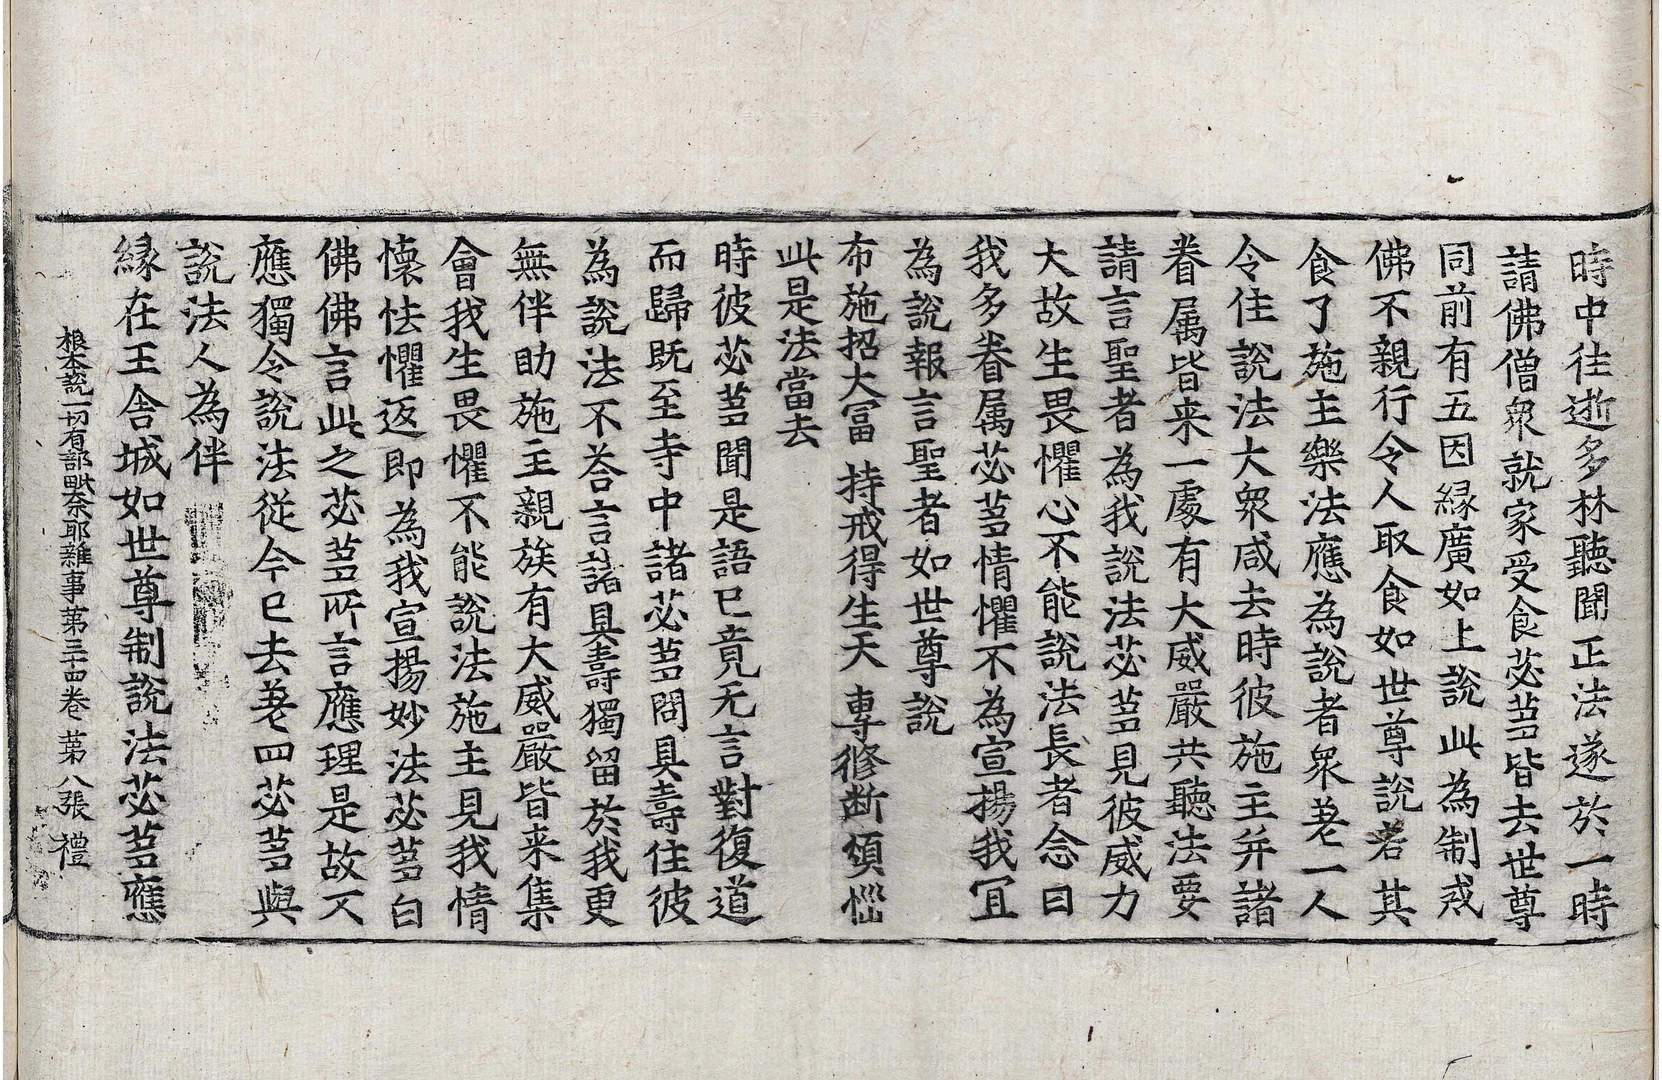 時中往逝多林聽聞正法遂於一時
請佛僧衆就家受食苾芻皆去世尊
同前有五因緣廣如上說此為制戒
佛不親行令人取食如世尊說若其
食了施主樂法應為說者衆差一人
令住說法大衆咸去時彼施主并諸
眷属皆来一處有大威嚴共聽法要
請言聖者為我說法苾芻見彼威力
大故生畏懼心不能說法長者念曰
我多眷属苾芻情懼不為宣揚我宜
為說報言聖者如世尊說
布施招大冨 持戒得生天 專修断煩惱
此是法當去
時彼苾芻聞是語已竟无言對復道
而歸既至寺中諸苾芻問具壽住彼
為說法不荅言諸具壽獨留於我更
無伴助施主親族有大威嚴皆来集
會我生畏懼不能說法施主見我情
懐怯懼返即為我宣揚妙法苾芻白
佛佛言此之苾芻所言應理是故不
應獨令說法從今已去差四苾芻與
說法人為伴
緣在王舍城如世尊制說法苾芻應
根本說一切有部毗奈耶雜事第三十四卷 第八張 禮